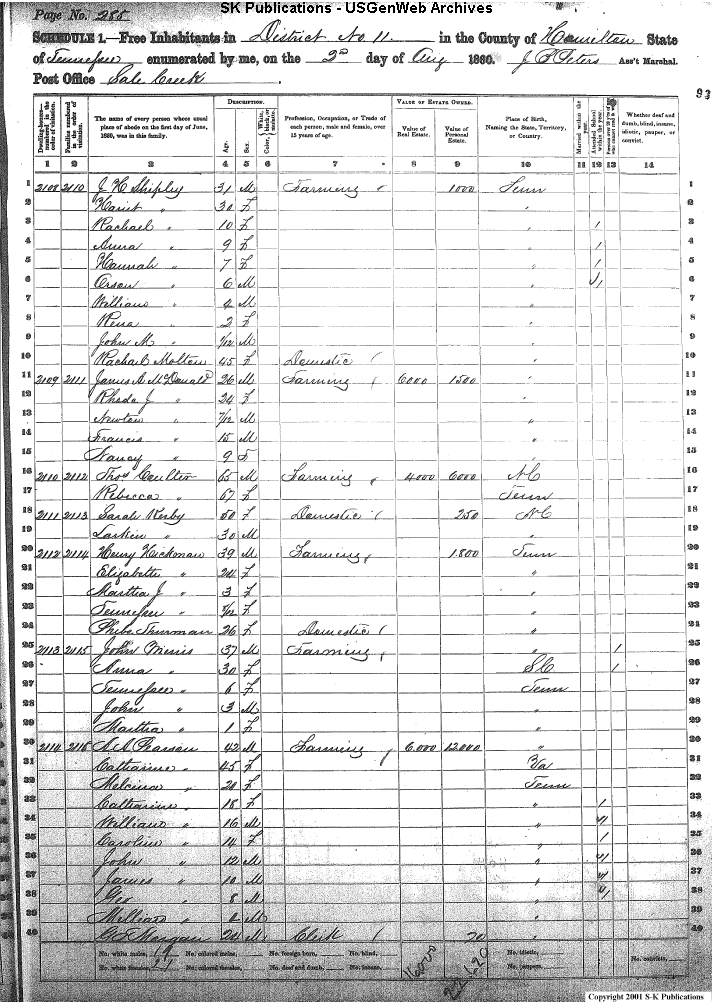 SK Publications - USGenWeb Archives
Page No. 285
SCHEDULE 1.—Free Inhabitants in District No 11 in the County of Hamilton State
of Tennessee enumerated by me, on the 2d day of Aug 1860. J P Peters Ass't Marshal.
Post Office Sale Creek
93
Dwelling-houses—numbered in the order of visitation.
Families numbered in the order of visitation.
The name of every person whose usual place of abode on the first day of June, 1860, was in this family.
DESCRIPTION.
Age.
Sex.
Color, White, black, or mulatto.
Profession, Occupation, or Trade of each person, male and female, over 15 years of age.
VALUE OF ESTATE OWNED.
Value of Real Estate.
Value of Personal Estate.
Place of Birth, Naming the State, Territory, or Country.
Married within the year.
Attended School within the year.
Whether deaf and dumb, blind, insane, idiotic, pauper, or convict.
1 2 3 4 5 6 7 8 9 10 11 12 13 14
1 2108 2110 J H Shipley 31 M Farming 1000 Tenn 1
2 " 30 F " 2
3 Rachael " 10 F " 1 3
4 Anna " 9 F " 1 4
5 Hannah " 7 F " 1 5
6 Orson " 6 M " 1 6
7 William " 4 M " 7
8 Rena " 2 F " 8
9 John M " /12 M " 9
10 Rachael Molton 45 F Domestic " 10
11 2109 2111 James A McDonald 26 M Farming 6000 1500 " 11
12 Rhoda J " 24 F " 12
13 Newton " 7/12 M " 13
14 Francis " 15 M " 14
15 Nancy " 9 F " 15
16 2110 2112 Thos Coulter 65 M Farming 4000 6000 NC 16
17 Rebecca " 67 F Tenn 17
18 2111 2113 Sarah Kerby 50 F Domestic 250 NC 18
19 Larkin " 30 M " 19
20 2112 2114 Henry Hickman 39 M Farming 1800 Tenn 20
21 Elizabeth " 24 F " 21
22 Martha J " 3 F " 22
23 Tennessee " /12 F " 23
24 Phebe Thurman 26 F Domestic " 24
25 2113 2115 John 37 M Farming " 1 25
26 Anna " 30 F SC 1 26
27 Tennessee " 6 F Tenn 27
28 John " 3 M " 28
29 Martha " 1 F " 29
30 2114 2116 Pearson 42 M Farming 6,000 12000 " 30
31 Catharine " 45 F Va 31
32 " 20 F Tenn 32
33 Catharine " 18 F " 1 33
34 William " 16 M " 1 34
35 Caroline " 14 F " 1 35
36 John " 12 M " 1 36
37 James " 10 M " 1 37
38 Geo " 8 M " 1 38
39 " 2 M " 39
40 Morgan 24 M Clerk " 40
No. white males, 19 No. colored males, No. foreign born, No. blind, 16000 No. idiotic, No. convicts,
No. white females, 21 No. colored females, No. deaf and dumb, No. insane, No. paupers,
Copyright 2001 S-K Publications